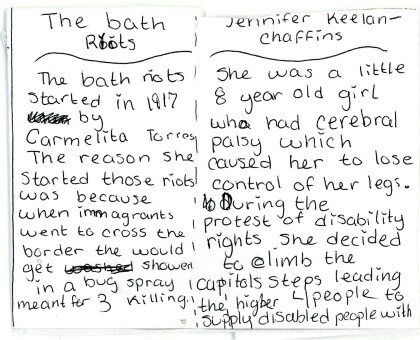 The bath
Riots
The bath riots
started in 1917
by
Carmelita Torres
The reason she
started those riots
was because
when immagrants
went to cross the
border the would
get showen
in a bug spray
meant for 3 killing.
Jennifer Keelan-
chaffins
She was a little
8 year old girl
who had cerebral
palsy which
caused her to lose
control of her legs.
During the
protest of disability
rights she decided
to climb the
capitols steps leading
the higher people to
supply disabled people with